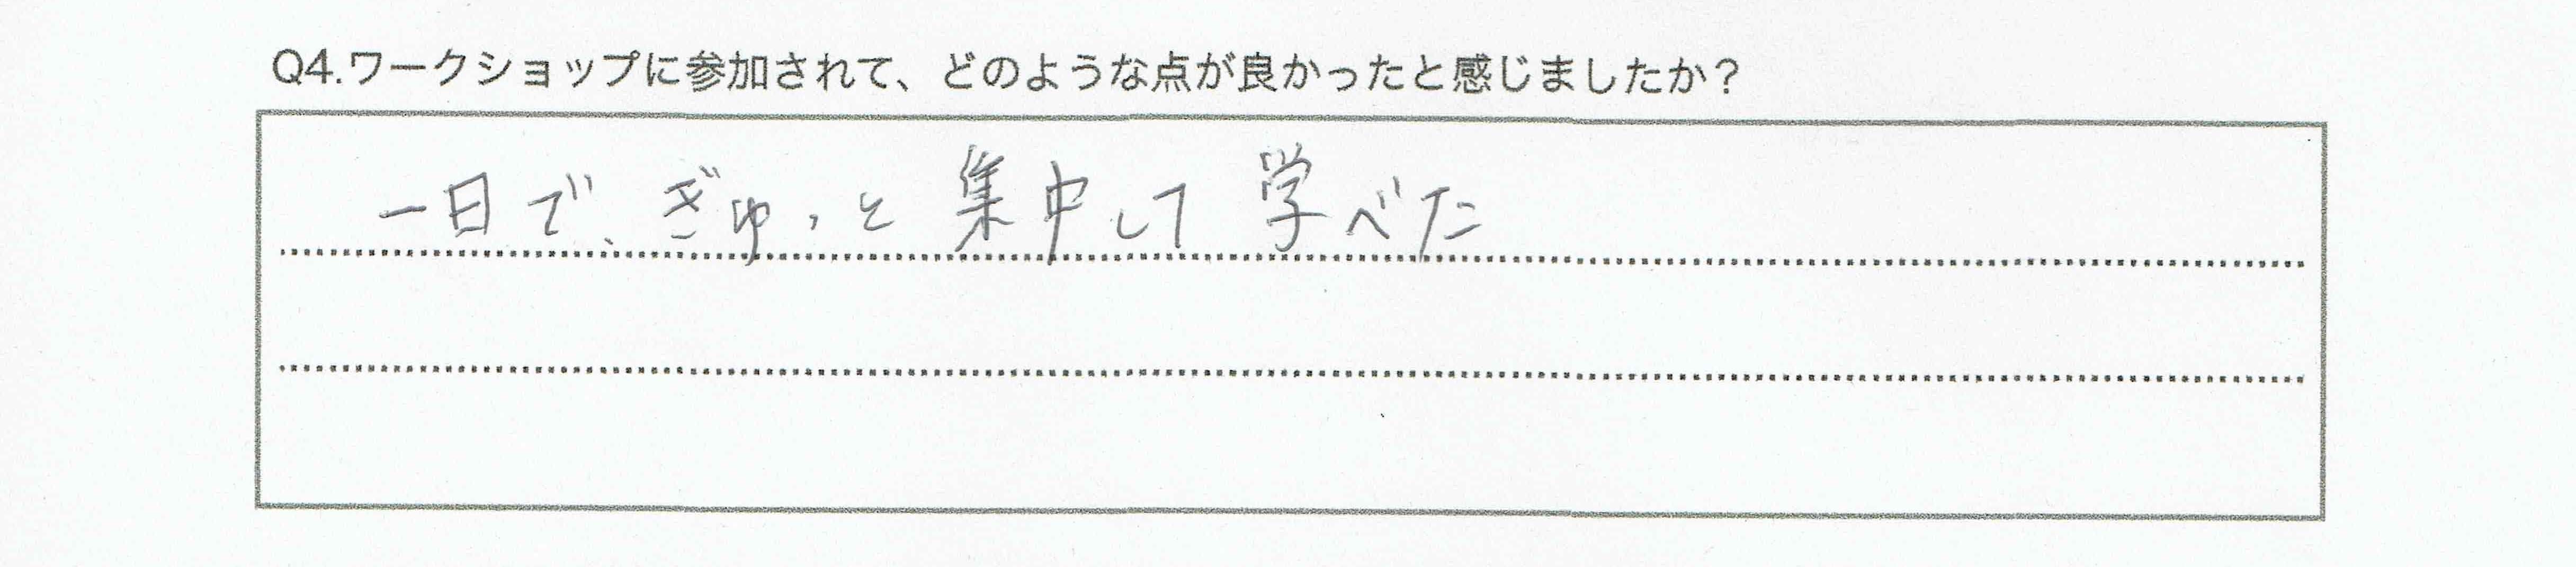 Q4.ワークショップに参加されて、どのような点が良かったと感じましたか？
一日で、ぎゅっと集中して学べた